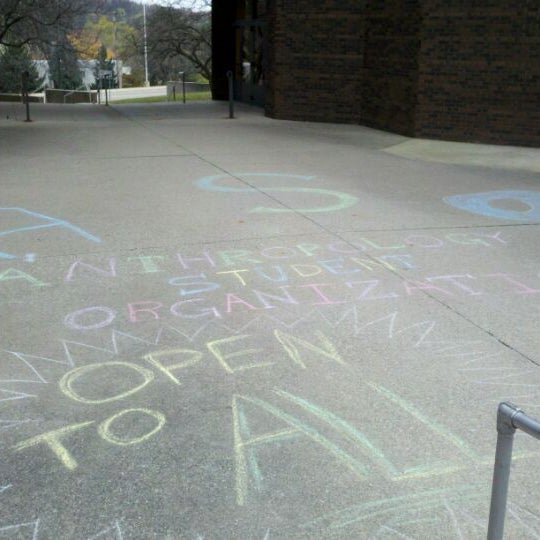 A S O
ANTHROPOLOGY
STUDENT
ORGANIZATI
OPEN
TO ALL